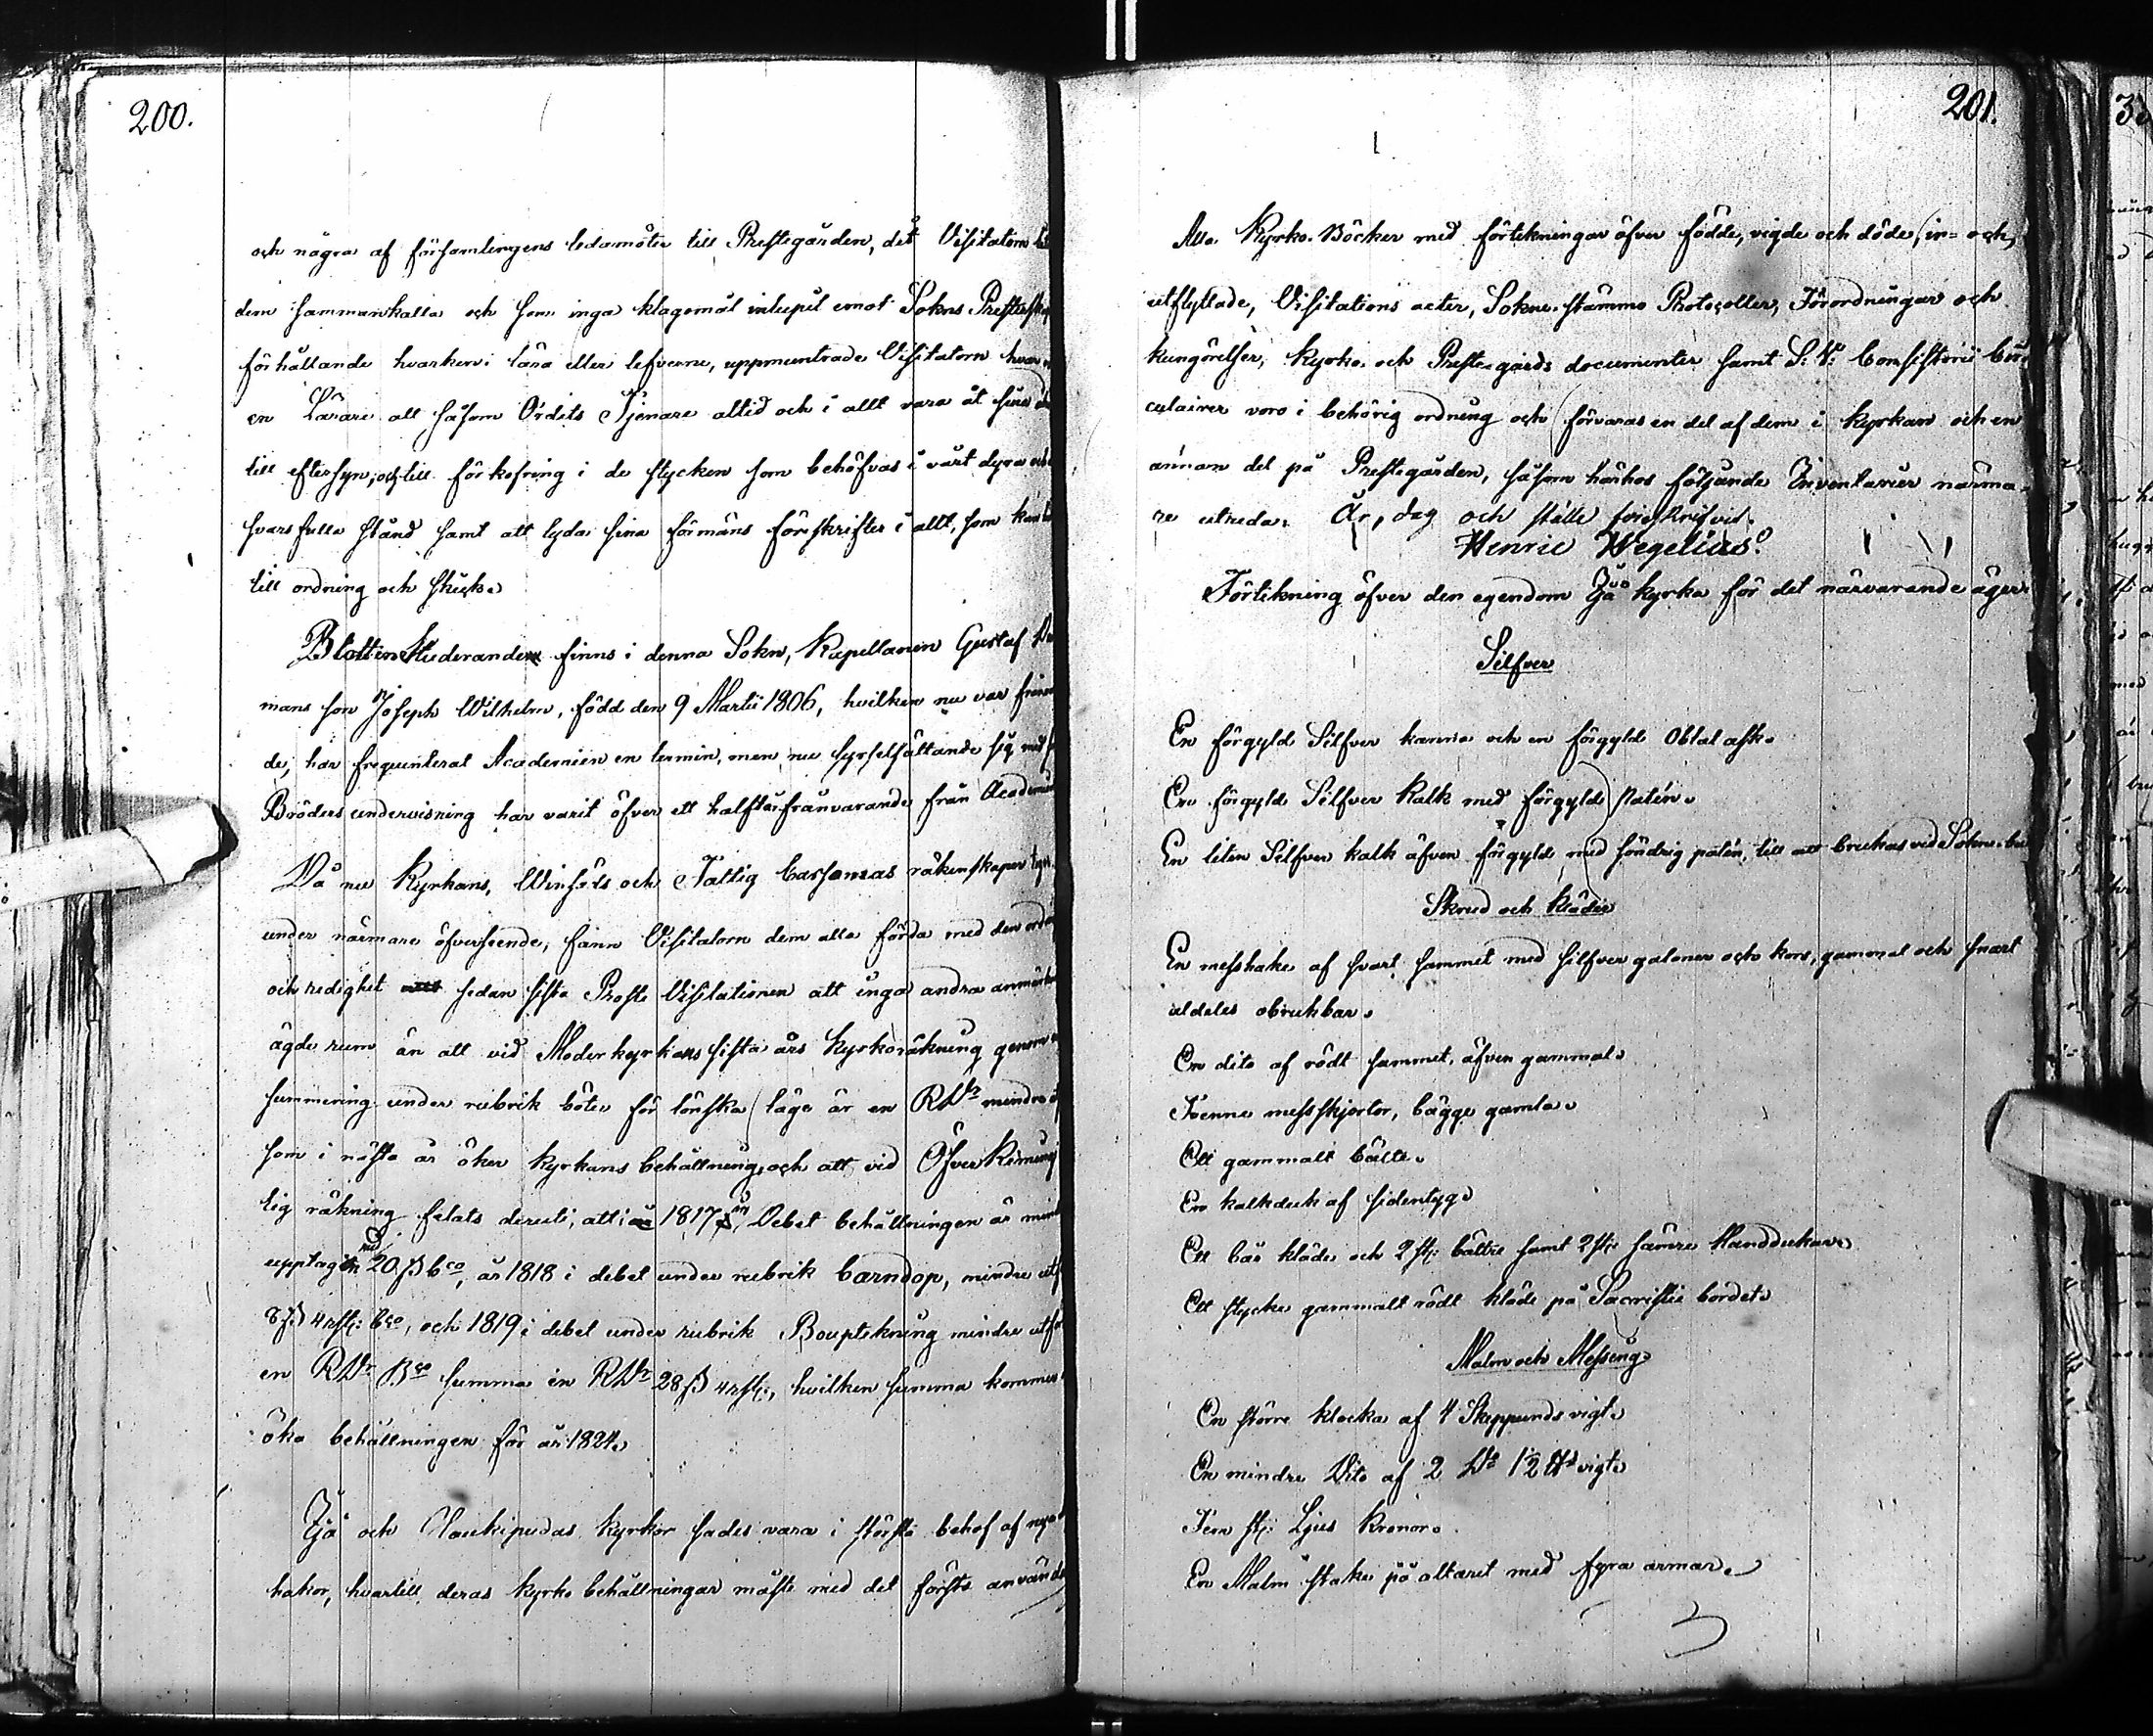 200.
och några af församlingens ledamöter till Prestegården, dit Visitatorn
dem sammankalla och som inga klagomål inlupit emot Sokne Presterskapets
förhållande hvarken i lära eller lefverne, uppmuntrade Visitatorn hvar
en Lärare att såsom Ordets Tjenare altid och i allt vara åt sine
till eftersyn, och till förkofring i de stycken som behöfvas i vårt dyra
svarsfulla stånd samt att lyda sina förmäns föreskrifter i allt, som kan
till ordning och skick.
Blott en Studerande finns i denna Sokn, Kapellanen Gustaf
mans son Joseph Wilhelm, född den 9 Martii 1806, hvilken nu var
de, har frequenterat Academien en termin, men nu sysselsättande sig med
Bröders undervisning har varit öfver ett halft år frånvarande från Academien
Då nu Kyrkans, Winsäds och Fattig Cassornas räkenskaper
under närmare öfverseende, fann Visitatorn dem alla förda med den
och redighet sedan sista Prosts Visitationen att inga andra
ägde rum än att vid Moderkyrkans sista års kyrkoräkning genom
summering under rubrik böter för lönska läge är en RDr mindre
som i nästa år öker kyrkans behållning, och att vid Öfver Kiimingi
lig räkning felats deruti, att i 1817 års Debet behållningen är
upptagen med 20 ß bco, år 1818 i debet under rubrik barndop, mindre
8 ß 4 rst: bco, och 1819 i debet under rubrik Boupteckning mindre
en RDr Bco summa en RDr 28 ß 4 rst:, hvilken summa kommer
öka behållningen för år 1824.
Ijå och Haukipudas kyrkor sades vara i största behof af nya
hakor, hvartill deras kyrko behållningar måste med det första användas
201.
Alla Kyrko-Böcker med förtekningar öfver födde, vigde och döde, in- och
utflyttade, Visitations acter, Sokne-stämmo Protocoller, Förordningar och
kungörelser, Kyrko- och Preste-gårds documenter samt S: V: Consistorii Cir-
culairer voro i behörig ordning och förvaras en del af dem i kyrkan och en
annan del på Prestegården, såsom härhos följande Inventarier närma-
re utreda. År, dag och ställe föreskrifvid.
Henric Wegelius.
Förtekning öfver den egendom Ijå kyrka för det närvarande äger.
Silfver
En förgyld Silfver kanna och en förgyld Oblat ask.
En förgyld Silfver Kalk med förgyld paten.
En liten Silfver kalk äfven förgyld med söndrig paten, till att brukas vid Sokne-bud
Skrud och Kläder
En messhake af svart sammet med silfver galoner och kors, gammal och snart
aldeles obrukbar.
En dito af rödt sammet, äfven gammal.
Tvenne messskjortor, bägge gamla.
Ett gammalt bälte.
En kalkduk af sidentyg.
Ett bår kläde och 2 st: bättre samt 2 st: sämre Handdukar.
Ett stycke gammalt rödt kläde på Sacristie bordet.
Malm och Messing
En större klocka af 4 Skeppunds vigt.
En mindre Dito af 2 Do 12 ℔d vigt.
Fem st: Ljus Kronor.
En Malm stake på altaret med fyra armar.